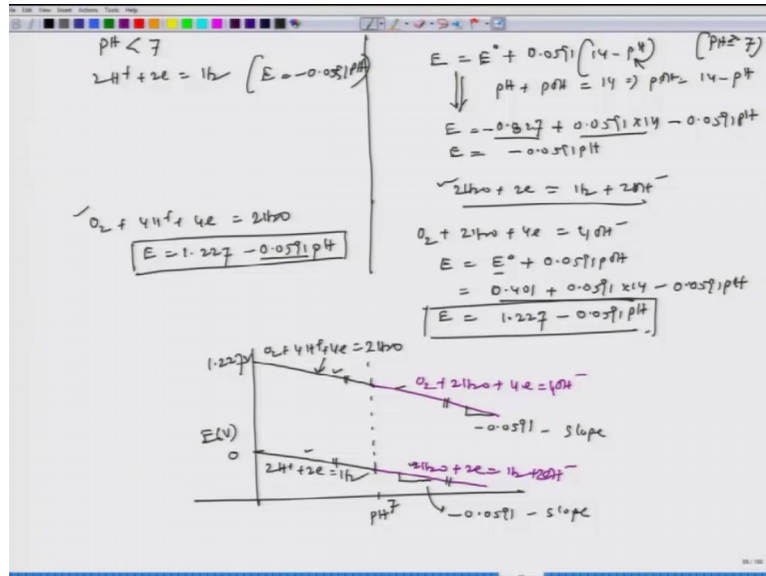 File Edit View Insert Actions Tools Help
pH < 7
2H⁺ + 2e = H2 (E = -0.0591pH)
O2 + 4H⁺ + 4e = 2H2O
E = 1.227 - 0.0591pH
E = E° + 0.0591(14 - pH) (pH ≥ 7)
pH + pOH = 14 ⇒ pOH = 14 - pH
E = -0.827 + 0.0591 × 14 - 0.0591pH
E = -0.0591pH
2H2O + 2e = H2 + 2OH⁻
O2 + 2H2O + 4e = 4OH⁻
E = E° + 0.0591pOH
= 0.401 + 0.0591 × 14 - 0.0591pH
E = 1.227 - 0.0591pH
1.227
O2 + 4H⁺ + 4e = 2H2O
O2 + 2H2O + 4e = 4OH⁻
-0.0591 - slope
E(V)
0
2H⁺ + 2e = H2
2H2O + 2e = H2 + 2OH⁻
pH 7
-0.0591 - slope